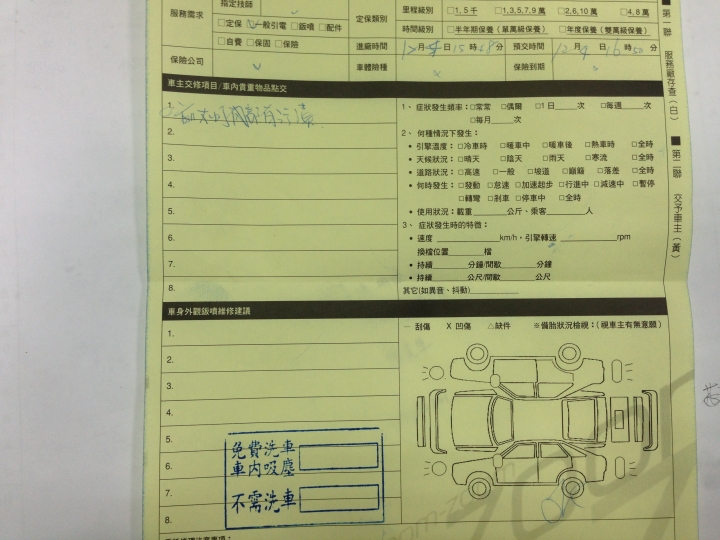 指定技師
服務需求
□定保 □一般引電 □鈑噴 □配件
□自費 □保固 □保險
定保類別
里程級別 □1,5千 □1,3,5,7,9萬 □2,6,10萬 □4,8萬
時間級別 □半年期保養(單萬級保養) □年度保養(雙萬級保養)
進廠時間 12月 日15時 分 預交時間 12月 日16時50分
保險公司 車體險種 保險到期
第一聯 服務廠存查(白) ■第二聯 交予車主(黃)
車主交修項目/車內貴重物品點交
1.
2.
3.
4.
5.
6.
7.
8.
1、症狀發生頻率:□常常 □偶爾 □1日____次 □每週____次
□每月____次
2、何種情況下發生:
• 引擎溫度:□冷車時 □暖車中 □暖車後 □熱車時 □全時
• 天候狀況:□晴天 □陰天 □雨天 □寒流 □全時
• 道路狀況:□高速 □一般 □坡道 □顛簸 □落差 □全時
• 何時發生:□發動 □怠速 □加速起步 □行進中 □減速中 □暫停
□轉彎 □剎車 □停車中 □全時
• 使用狀況:載重______公斤、乘客______人
3、症狀發生時的特徵:
• 速度__________km/h,引擎轉速__________rpm
換檔位置______檔
• 持續______分鐘/間歇______分鐘
• 持續______公尺/間歇______公尺
其它(如異音、抖動)__________
車身外觀鈑噴維修建議
1.
2.
3.
4.
5.
6.
7.
8.
─ 刮傷 X 凹傷 △缺件 ※備胎狀況檢視:(視車主有無意願)
免費洗車
車內吸塵
不需洗車